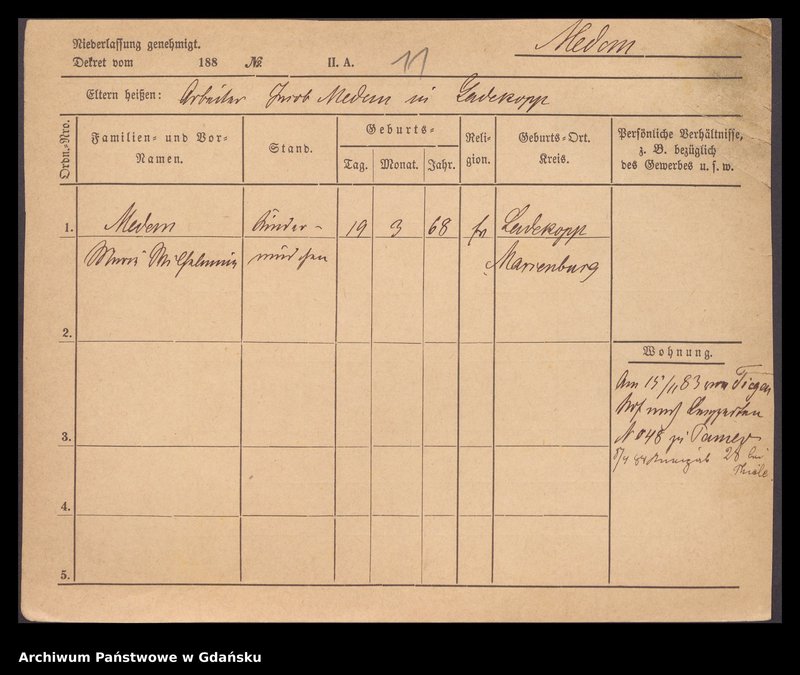 Niederlassung genehmigt.
Dekret vom 188 No. II. A. 11
Medem
Eltern heißen: Arbeiter Jacob Medem in Ladekopp
Ordn.-Nro.
Familien- und Vor-Namen.
Stand.
Geburts-
Tag. Monat. Jahr.
Religion.
Geburts-Ort.
Kreis.
Persönliche Verhältnisse,
z. B. bezüglich
des Gewerbes u. s. w.
1. Medem Kinder- 19 3 68 Ladekopp
Maria Wilhelmine mädchen Marienburg
2.
Wohnung.
Am 15/11 83 von Tiegen
hof nach
3.
No 48 zu
5/4 84 28 bei
Thiele
4.
5.
Archiwum Państwowe w Gdańsku